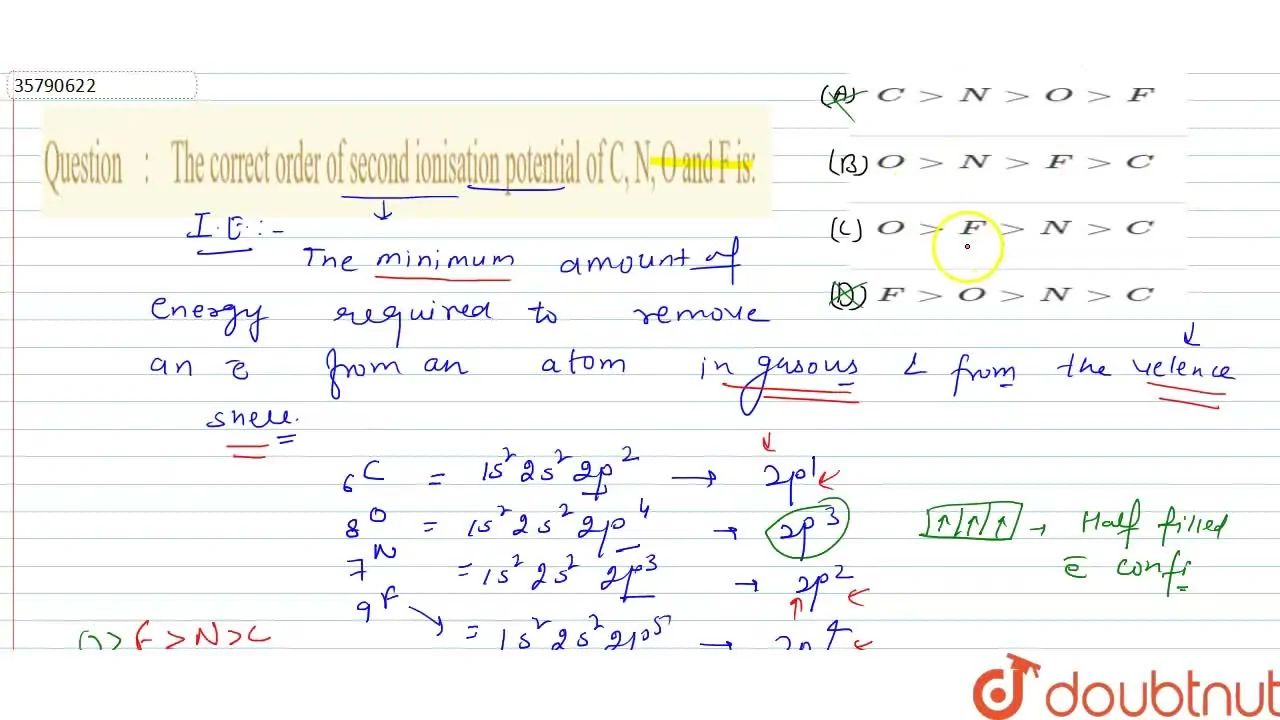 35790622
Question : The correct order of second ionisation potential of C, N, O and F is:
(A) C > N > O > F
(B) O > N > F > C
(C) O > F > N > C
(D) F > O > N > C
I.E :-
The minimum amount of
energy required to remove
an e̅ from an atom in gasous & from the velence
shell.
₆C = 1s² 2s² 2p² → 2p¹
₈O = 1s² 2s² 2p⁴ → 2p³
₇N = 1s² 2s² 2p³ → 2p²
₉F = 1s² 2s² 2p⁵ → 2p⁴
↑ ↑ ↑ → Half filled
e̅ confi
O > F > N > C
doubtnut